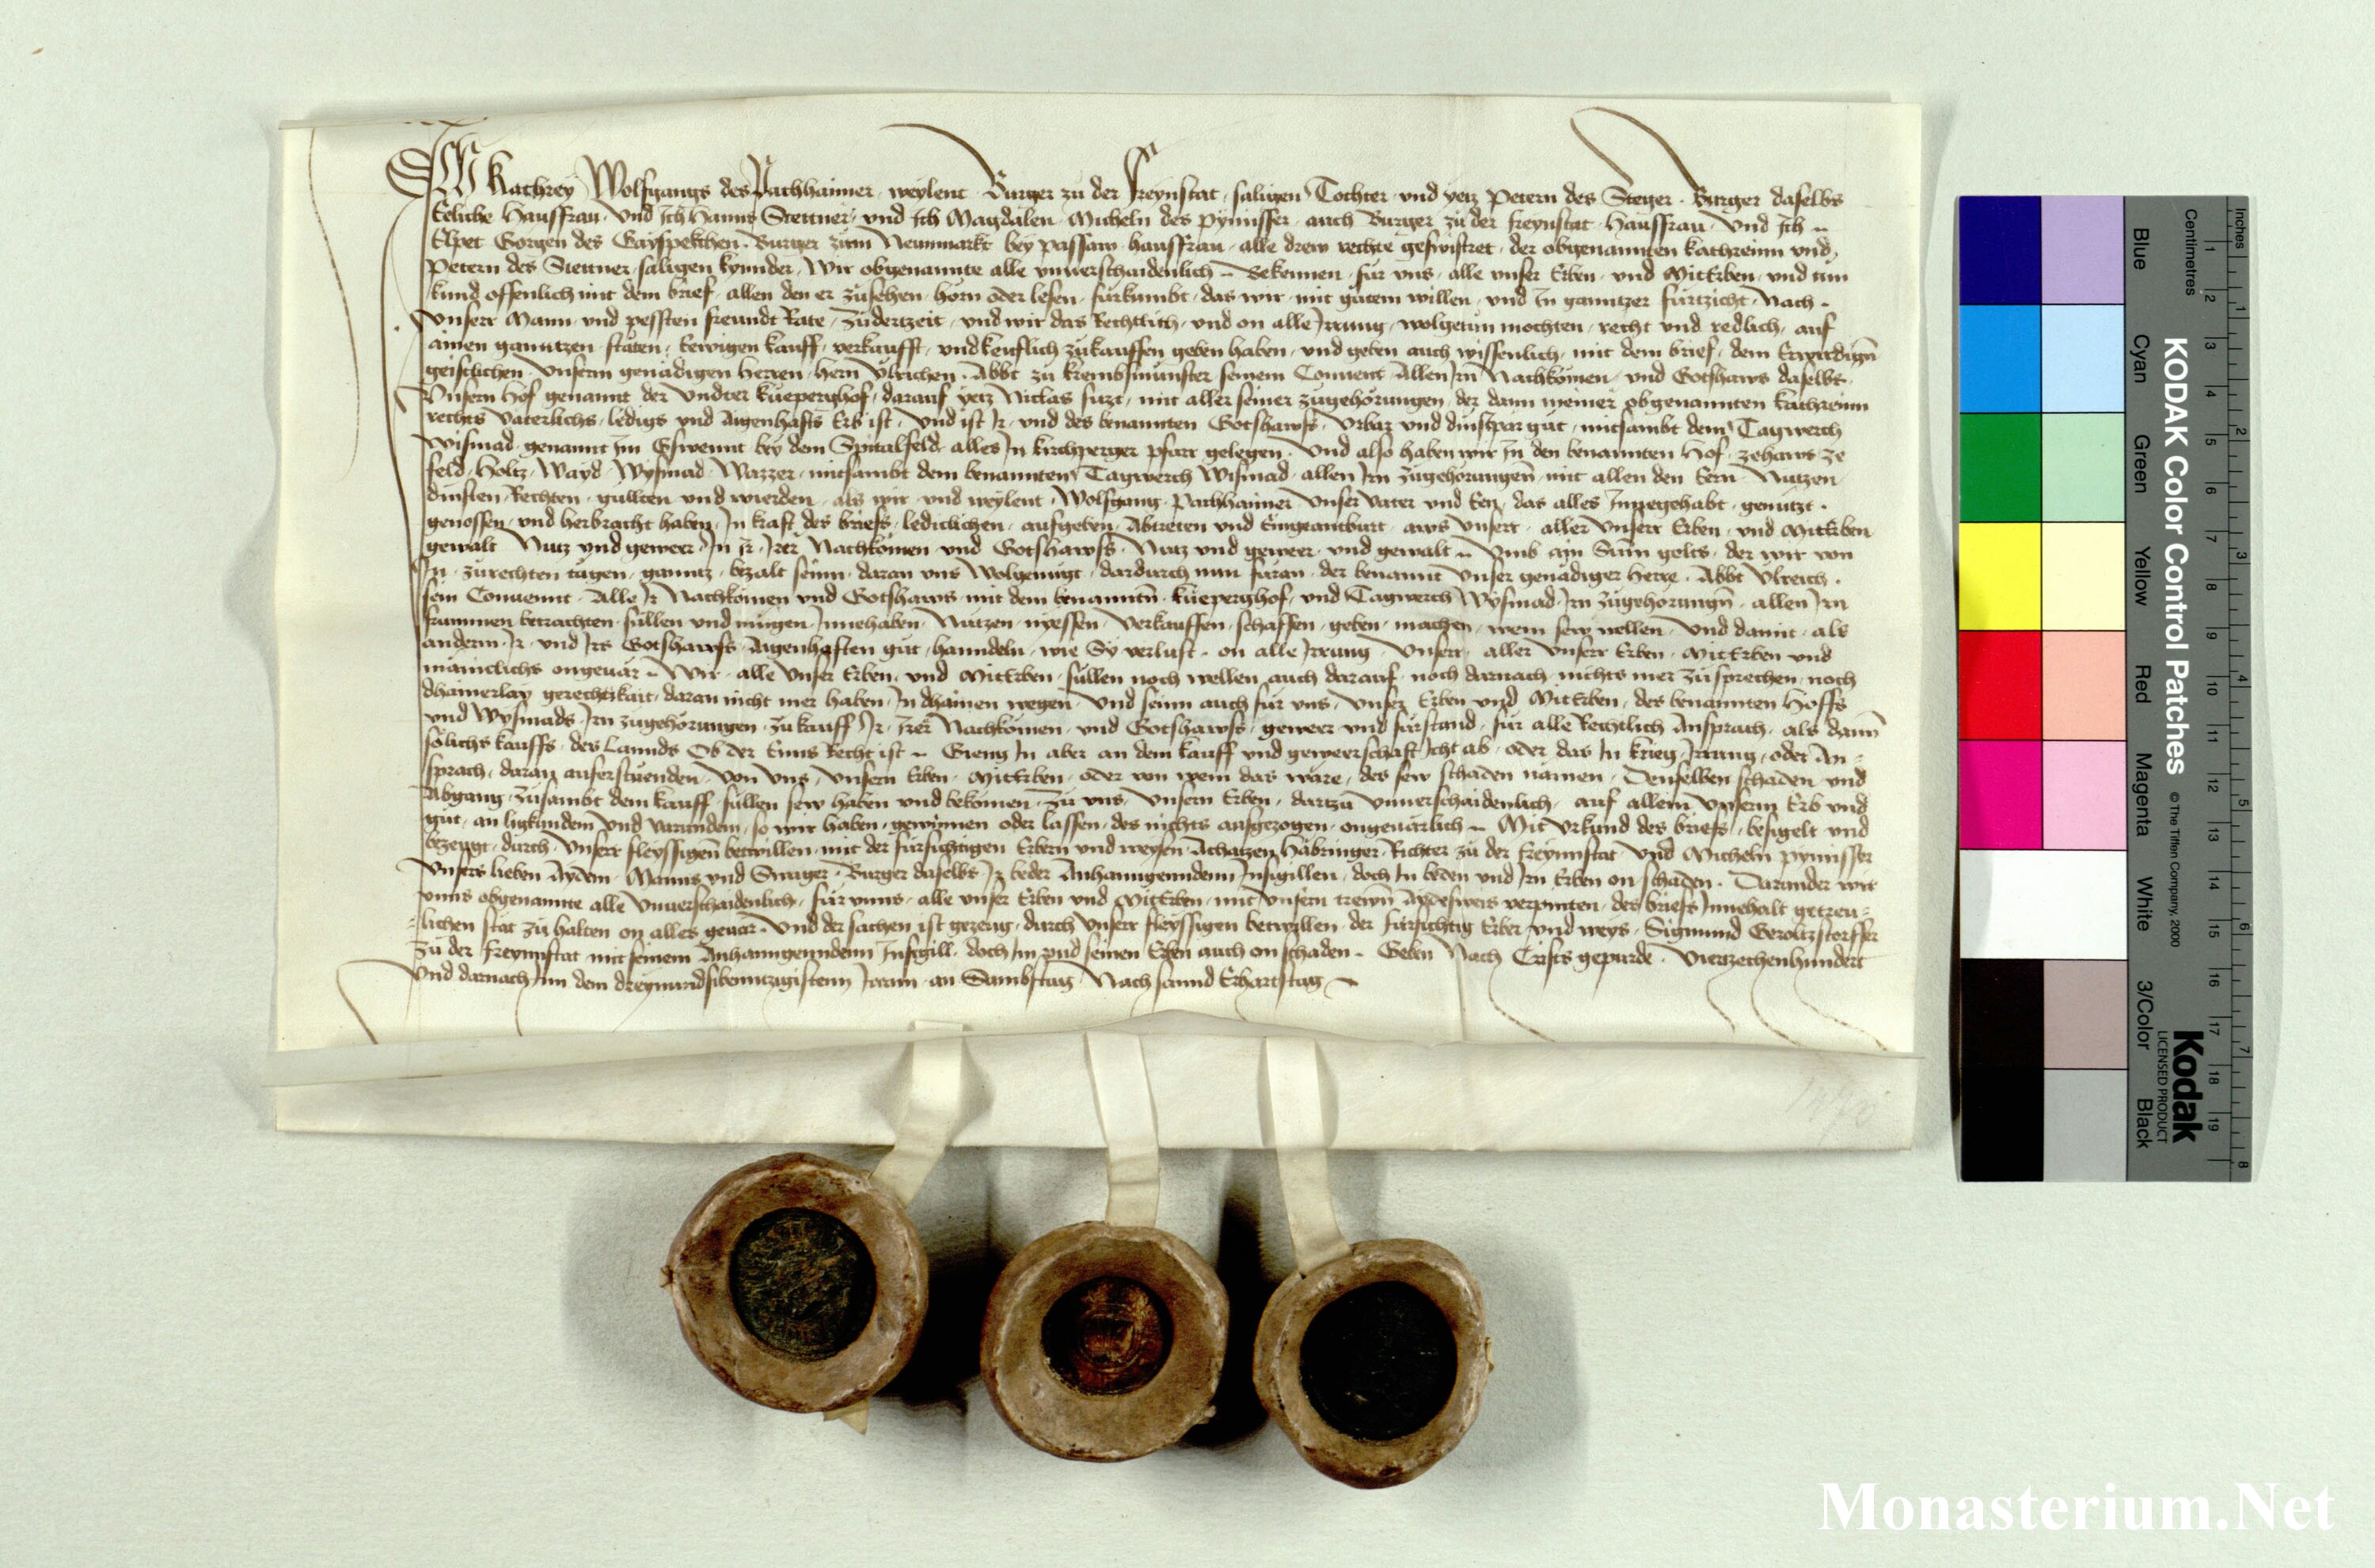 Ich Kathrey Wolfgangs des Pachhaimer weylent Burger zu der Freynstat saligen Tochter und yetz Petern des Steger Burger daselbs
Eeliche Hausfrau und Ich Hanns Stettner und Ich Magdalen Micheln des Pymisser auch Burger zu der Freynstat Hausfrau Und Ich
Elspet Gorgen des Gayspekchen Burger zum Newnmarkt bey Passaw hausfrau alle drew rechte geswistret der obgenannten Kathreinn und
Petern des Stettner saligen kynnder Wir obgenannte alle unverschaidenlich Bekennen für uns alle unser Erben und MitErben und tun
kund offenlich mit dem brief allen den er zusehen hörn oder lesen fürkumbt das wir mit gutem willen und In ganntzer fürtzicht Nach
Unserr Mann und pessten freundt Rate zudertzeit und wir das Rechtlich und on alle Irrung wolgetun mochten recht und redlich auf
ainen ganntzen stäten Eewigen kauff verkaufft und keuflich zukauffen geben haben und geben auch wissenlich mit dem brief dem Erwirdign
geistlichen Unserm genädigen Herren Hern Ulrichen Abbt zu Krembsmünster seinem Convent Allen Irn Nachkomen und Gotshaws daselbs
Unsern Hof genannt der Undter Kueperghof darauf yetz Niclas sitzt mit aller seiner zugehörungen der dann meiner obgenannten Kathreinn
rechts Vaterlichs ledigs und Aigenhafts Erb ist und ist Ir und des benannten Gotshawss Urbar und dinstpar gut mitsambt dem Tagwerch
Wismad genannt Im Gswennt bey dem Spitalfeld alles In kirchperger pfarr gelegen Und also haben wir In den benannten Hof zehaws ze
feld Holtz Wayd Wysmad Wazzer mitsambt dem benannten Tagwerch Wismad allen Irn zugehörungen mit allen den Eern Nutzen
dinsten Rechten gullten und wierden als wir und weylent Wolfgang Pachhaimer Unser Vater und Een das alles Innegehabt genützt
genossen und herbracht haben In kraft des briefs ledictlichen aufgeben Abtreten und Eingeantburt aws Unserr aller Unserr Erben und MitErben
gewalt Nutz und gewer In Ir Irer Nachkomen und Gotshawss Nutz und gewer und gewalt Umb ain Sum gelts der wir von
In zurechten tägen ganntz bezalt seinn daran uns Wolgenügt dardurch nun füran der benannt Unser genädiger Herre Abbt Ulreich
sein Convennt Alle Ir Nachkomen und Gotshaws mit dem benanntn Kueperghof und Tagwerch Wysmad Irn zugehörungn allen Irn
frummen betrachten sullen und mügen Innehaben Nutzen nyessen Verkauffen schaffen geben machen wem sew wellen Und damit als
anderm Ir und Irs Gotshawss Aigenhaften gut hanndeln wie Sy verlust on alle Irrung Unserr aller Unserr Erben MitErben und
männiclichs ongevär Wir alle Unser Erben und MitErben sullen noch wellen auch darauf noch darnach nichts mer zusprechen noch
dhainerlay gerechtikait daran nicht mer haben In dhainen wegen Und seinn auch für uns Unser Erben und MitErben des benannten Hoffs
und Wysmads Irn zugehörungen zu kauff Ir Irer Nachkomen und Gotshawss gewer und fürstand für alle Rechtlich Ansprach als dann
sölichs kauffs des Lannds Ob der Enns Recht ist Gieng In aber an dem kauff und gewerschaft Icht ab oder das In krieg Irrung oder An=
sprach daran auferstuenden Von uns Unsern Erben MitErben oder von wem das wäre des sew schaden nämen Denselben schaden und
Abgang zusambt dem kauff sullen sew haben und bekömen zu uns Unsern Erben dartzu Unverschaidenlich auf allem Unserm Erb und
gut an ligkundem und varundem so wir haben gewinnen oder lassen des nichts aufgezogen ongevärlich Mit Urkund des briefs besigelt und
bezeugt durch Unserr fleyssigen betwillen mit der fürsichtigen Erbern und weysen Achatzen Häbringer Richter zu der Freynnstat und Micheln Pymisser
Unsers lieben Aydem Manns und Swager Burger daselbs Ir beder Anhanngenndenn Insigillen doch In beden und Irn Erben on schaden Darunder wir
unns obgenannte alle Unverschaidenlich für unns alle unser Erben und MitErben mit Unsern trewn Aydesweis verpunten des briefs Innehalt getreu=
=lichen stät zu halten on alles gevär Und der sachen ist gezeug durch Unserr fleyssigen betwillen der fürsichtig Erber und weys Sigmund Geroltzstorffer
zu der Freynnstat mit seinem Anhanngenndenn Insigill doch Im und seinen Erben auch on schaden Geben Nach Crists gepurde Viertzechenhundert
Und darnach Inn dem dreyundsibenntzigistenn Jarenn an Sambstag Nach sannd Erhartstag
Inches
Centimetres
Blue Cyan Green Yellow Red Magenta White 3/Color Black
KODAK Color Control Patches
© The Tiffen Company, 2000
Kodak
LICENSED PRODUCT
1 2 3 4 5 6 7 8
1 2 3 4 5 6 7 8 9 10 11 12 13 14 15 16 17 18 19
Monasterium.Net